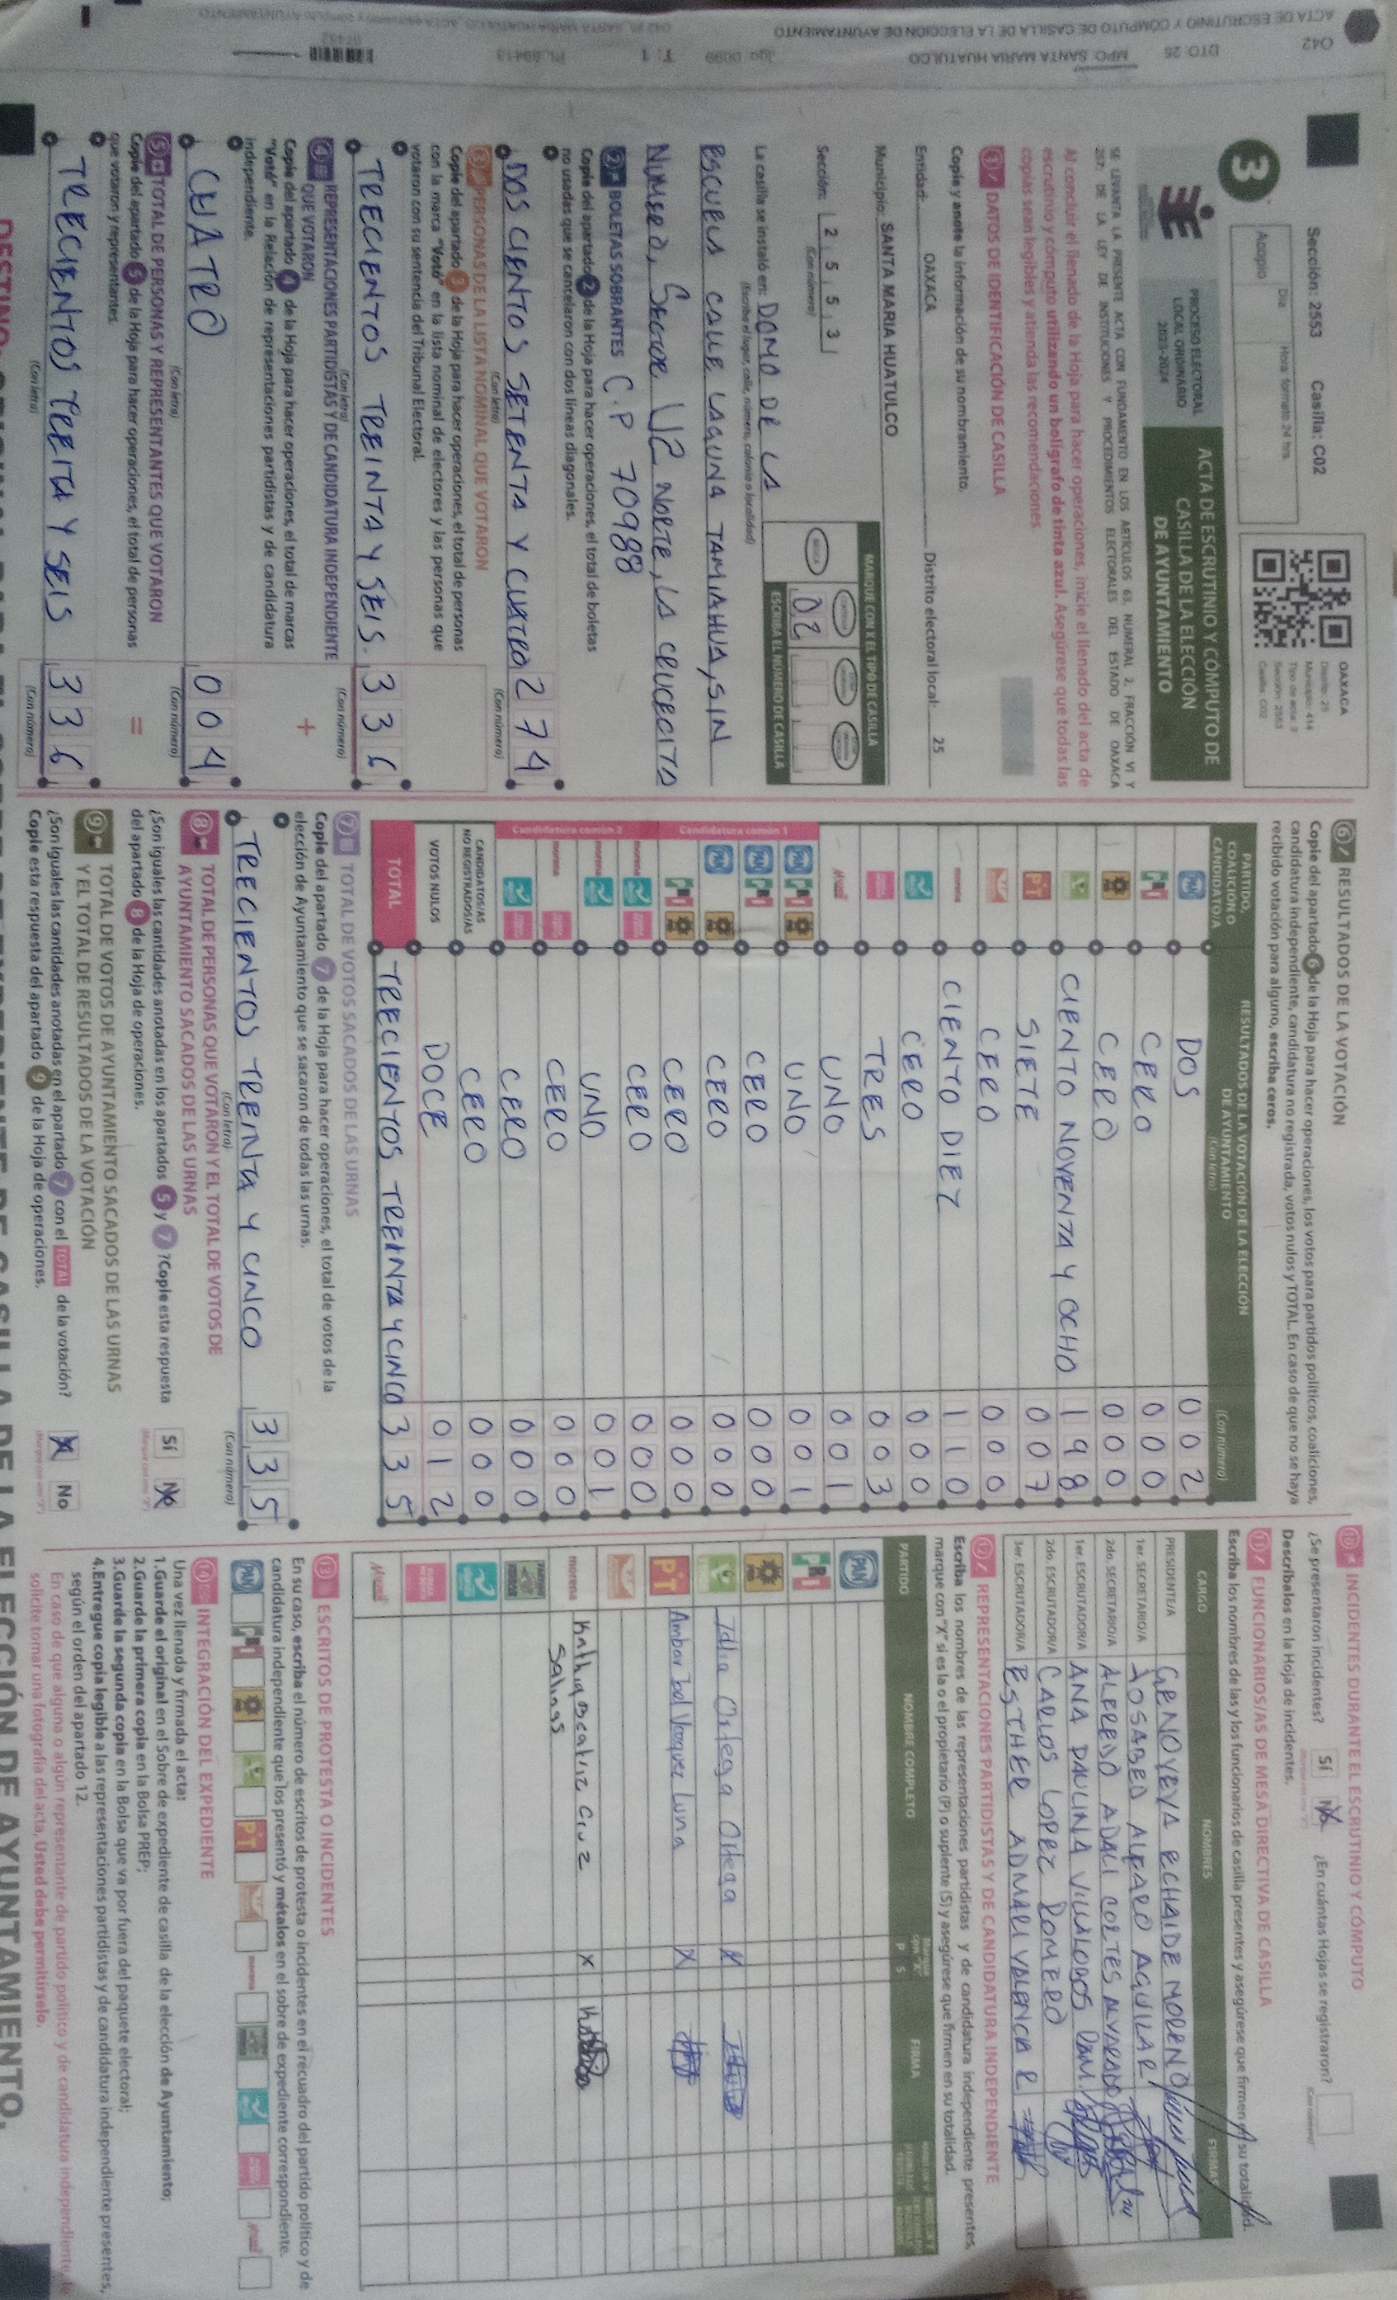 ACTA DE ESCRUTINIO Y CÓMPUTO DE CASILLA DE LA ELECCIÓN DE AYUNTAMIENTO
042
DTO: 25
MPO: SANTA MARIA HUATULCO
Sección: 2553 Casilla: C02
3
Acopio
Día
Hora: formato 24 hrs.
OAXACA
Distrito: 25
Municipio: 414
Tipo de acta: 3
Sección: 2553
Casilla: C02
PROCESO ELECTORAL
LOCAL ORDINARIO
2023-2024
ACTA DE ESCRUTINIO Y CÓMPUTO DE
CASILLA DE LA ELECCIÓN
DE AYUNTAMIENTO
SE LEVANTA LA PRESENTE ACTA CON FUNDAMENTO EN LOS ARTÍCULOS 63, NUMERAL 2, FRACCIÓN VI Y
257; DE LA LEY DE INSTITUCIONES Y PROCEDIMIENTOS ELECTORALES DEL ESTADO DE OAXACA
Al concluir el llenado de la Hoja para hacer operaciones, inicie el llenado del acta de
escrutinio y cómputo utilizando un bolígrafo de tinta azul. Asegúrese que todas las
copias sean legibles y atienda las recomendaciones.
1 DATOS DE IDENTIFICACIÓN DE CASILLA
Copie y anote la información de su nombramiento.
Entidad: OAXACA Distrito electoral local: 25
Municipio: SANTA MARIA HUATULCO
Sección: 2 5 5 3
(Con número)
MARQUE CON X EL TIPO DE CASILLA
ESCRIBA EL NÚMERO DE CASILLA
02
La casilla se instaló en: DOMO DE LA
(Escriba el lugar, calle, número, colonia o localidad)
ESCUELA CALLE LAGUNA TAMIAHUA, SIN
NUMERO, SECTOR U2 NORTE, LA CRUCECITA
C.P 70988
2 BOLETAS SOBRANTES
Copie del apartado 2 de la Hoja para hacer operaciones, el total de boletas
no usadas que se cancelaron con dos líneas diagonales.
DOS CIENTOS SETENTA Y CUATRO 2 7 4
(Con letra) (Con número)
3 PERSONAS DE LA LISTA NOMINAL QUE VOTARON
Copie del apartado 3 de la Hoja para hacer operaciones, el total de personas
con la marca "Votó" en la lista nominal de electores y las personas que
votaron con su sentencia del Tribunal Electoral.
TRECIENTOS TREINTA Y SEIS. 3 3 6
(Con letra) (Con número)
4 REPRESENTACIONES PARTIDISTAS Y DE CANDIDATURA INDEPENDIENTE
QUE VOTARON
Copie del apartado 4 de la Hoja para hacer operaciones, el total de marcas
"Votó" en la Relación de representaciones partidistas y de candidatura
independiente.
+
CUATRO 0 0 4
(Con letra) (Con número)
5 TOTAL DE PERSONAS Y REPRESENTANTES QUE VOTARON
Copie del apartado 5 de la Hoja para hacer operaciones, el total de personas
que votaron y representantes.
=
TRECIENTOS TREITA Y SEIS 3 3 6
(Con letra) (Con número)
6 RESULTADOS DE LA VOTACIÓN
Copie del apartado 6 de la Hoja para hacer operaciones, los votos para partidos políticos, coaliciones,
candidatura independiente, candidatura no registrada, votos nulos y TOTAL. En caso de que no se haya
recibido votación para alguno, escriba ceros.
PARTIDO,
COALICIÓN O
CANDIDATO/A
RESULTADOS DE LA VOTACIÓN DE LA ELECCIÓN
DE AYUNTAMIENTO
(Con letra) (Con número)
PAN DOS 0 0 2
PRI CERO 0 0 0
CERO 0 0 0
CIENTO NOVENTA Y OCHO 1 9 8
PT SIETE 0 0 7
CERO 0 0 0
morena CIENTO DIEZ 1 1 0
CERO 0 0 0
TRES 0 0 3
UNO 0 0 1
Candidatura común 1
UNO 0 0 1
CERO 0 0 0
CERO 0 0 0
CERO 0 0 0
Candidatura común 2
CERO 0 0 0
UNO 0 0 1
CERO 0 0 0
CERO 0 0 0
CANDIDATOS/AS
NO REGISTRADOS/AS CERO 0 0 0
VOTOS NULOS DOCE 0 1 2
TOTAL TRECIENTOS TREINTA Y CINCO 3 3 5
7 TOTAL DE VOTOS SACADOS DE LAS URNAS
Copie del apartado 7 de la Hoja para hacer operaciones, el total de votos de la
elección de Ayuntamiento que se sacaron de todas las urnas.
TRECIENTOS TRENTA Y CINCO 3 3 5
(Con letra) (Con número)
8 TOTAL DE PERSONAS QUE VOTARON Y EL TOTAL DE VOTOS DE
AYUNTAMIENTO SACADOS DE LAS URNAS
¿Son iguales las cantidades anotadas en los apartados 5 y 7 ?Copie esta respuesta
del apartado 8 de la Hoja de operaciones.
Sí No
9 TOTAL DE VOTOS DE AYUNTAMIENTO SACADOS DE LAS URNAS
Y EL TOTAL DE RESULTADOS DE LA VOTACIÓN
¿Son iguales las cantidades anotadas en el apartado 7 con el TOTAL de la votación?
Copie esta respuesta del apartado 9 de la Hoja de operaciones.
X No
10 INCIDENTES DURANTE EL ESCRUTINIO Y CÓMPUTO
¿Se presentaron incidentes? Sí No ¿En cuántas Hojas se registraron?
Descríbalos en la Hoja de incidentes.
11 FUNCIONARIOS/AS DE MESA DIRECTIVA DE CASILLA
Escriba los nombres de las y los funcionarios de casilla presentes y asegúrese que firmen en su totalidad.
CARGO NOMBRES FIRMAS
PRESIDENTE/A GENOVEVA ECHAIDE MORENO
1er. SECRETARIO/A JOSABED ALFARO AGUILAR
2do. SECRETARIO/A ALFREDO ADALI CORTES ALVARADO
1er. ESCRUTADOR/A ANA PAULINA VILLALOBOS
2do. ESCRUTADOR/A CARLOS LOPEZ ROMERO
3er. ESCRUTADOR/A ESTHER ADMARI VALENCIA R
12 REPRESENTACIONES PARTIDISTAS Y DE CANDIDATURA INDEPENDIENTE
Escriba los nombres de las representaciones partidistas y de candidatura independiente presentes,
marque con "X" si es la o el propietario (P) o suplente (S) y asegúrese que firmen en su totalidad.
PARTIDO NOMBRE COMPLETO P S FIRMA
PAN
PRI
Idlia Ortega Ortega X
PT Ambar bel Vazquez Luna X
morena Kathia Beatriz Cruz X
Salinas
13 ESCRITOS DE PROTESTA O INCIDENTES
En su caso, escriba el número de escritos de protesta o incidentes en el recuadro del partido político y de
candidatura independiente que los presentó y métalos en el sobre de expediente correspondiente.
PAN PRI PT
14 INTEGRACIÓN DEL EXPEDIENTE
Una vez llenada y firmada el acta:
1.Guarde el original en el Sobre de expediente de casilla de la elección de Ayuntamiento;
2.Guarde la primera copia en la Bolsa PREP;
3.Guarde la segunda copia en la Bolsa que va por fuera del paquete electoral;
4.Entregue copia legible a las representaciones partidistas y de candidatura independiente presentes,
según el orden del apartado 12.
En caso de que alguna o algún representante de partido político y de candidatura independiente
solicite tomar una fotografía del acta, Usted debe permitírselo.